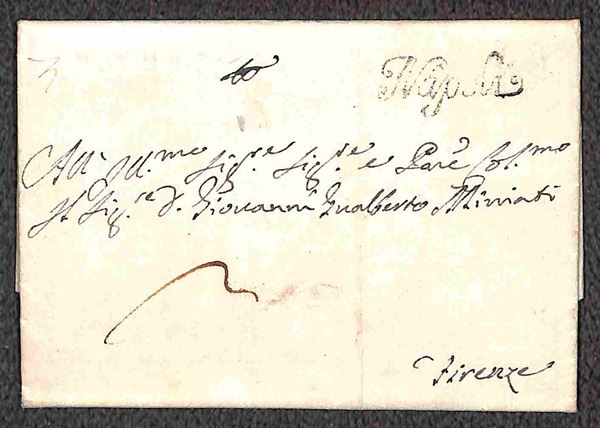 Napoli
All' Ill.mo Sig.re Sig.re e Pa\u0304re Col.mo
Il Sig.re D. Giovanni Gualberto Miniati
Firenze